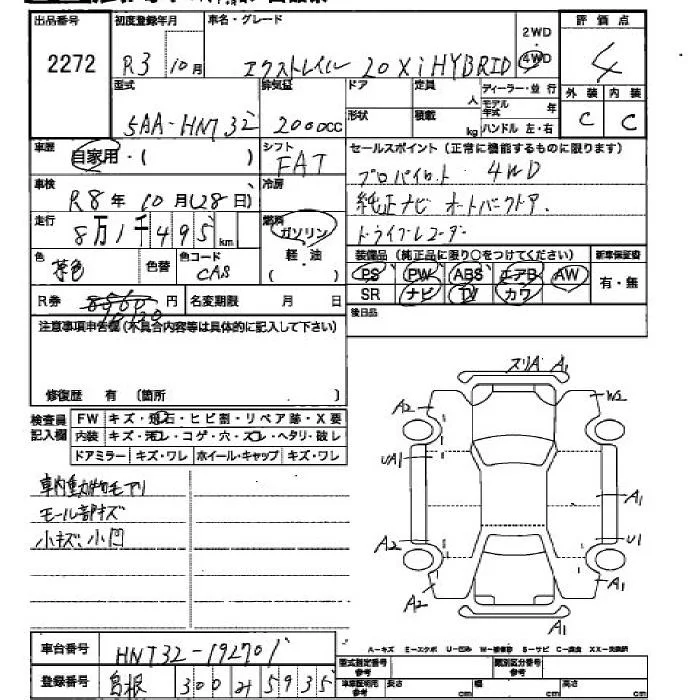 出品番号 初度登録年月 車名・グレード 2WD 評価点
2272 R3 10月 エクストレイル 20Xi HYBRID 4WD 4
型式 排気量 ドア 定員 人 ディーラー・並行 外装 内装
5AA-HNT32 2000cc 形状 積載 kg モデル年式 年 C C
ハンドル 左・右
車歴 自家用・( ) シフト FAT セールスポイント(正常に機能するものに限ります)
車検 R8年10月(28日) 冷房 プロパイロット 4WD
走行 8万1千495km 燃料 ガソリン 純正ナビ オートバックドア.
軽・油 ドライブレコーダー
( )
色 茶色 色替 色コード CAS 装備品(純正品に限り○をつけてください) 新車保証書
PS PW ABS エアB AW 有・無
R券 円 名変期限 月 日 SR ナビ TV カワ
注意事項申告欄(不具合内容等は具体的に記入して下さい) 後日品
修復歴 有 〔箇所 〕
検査員記入欄 FW キズ・飛石・ヒビ割・リペア跡・X要
内装 キズ・汚レ・コゲ・穴・スレ・ヘタリ・破レ
ドアミラー キズ・ワレ ホイール・キャップ キズ・ワレ
車内動物毛アリ
モール部キズ
小キズ、小凹
スリA A1
A2 W2
UA1 A1
A2 U1
A2 A1
A1
A-キズ E-エクボ U-凹み W-補修跡 S-サビ C-腐食 XX-交換済
車台番号 HNT32-192701
登録番号 島根 300 す 5935
型式指定番号 参考 類別区分番号 参考
車庫証明用 参考 長さ cm 幅 cm 高さ cm